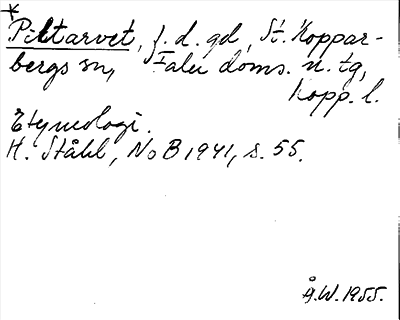 *
Piltarvet, f. d. gd, St. Koppar-
bergs sn, Falu doms. n. tg,
Kopp. l.
Etymologi.
H. Ståhl, NoB 1941, s. 55.
Å.W. 1955.